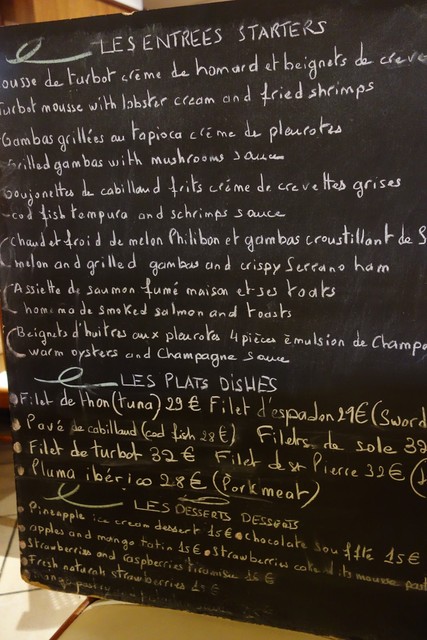 LES ENTREES STARTERS
ousse de turbot crème de homard et beignets de creve
Turbot mousse with lobster cream and fried shrimps
Gambas grillées au tapioca crème de pleurotes
Grilled gambas with mushrooms sauce
Goujonettes de cabillaud frits crème de crevettes grises
cod fish tempura and schrimps sauce
Chaud et froid de melon Philibon et gambas croustillant de S
melon and grilled gambas and crispy Serrano ham
Assiette de saumon fumé maison et ses toats
home made smoked salmon and toasts
Beignets d'huitres aux pleurotes 4 pièces émulsion de Champa
warm oysters and Champagne sauce
LES PLATS DISHES
Filet de thon (tuna) 29 € Filet d'espadon 29 € (Sword
Pavé de cabillaud (cod fish 28 €) Filets de sole 32
Filet de turbot 32 € Filet de st Pierre 32 €
Pluma ibérico 28 € (Porkmeat)
LES DESSERTS DESSERTS
Pineapple ice cream dessert 15 € chocolate soufflé 15 €
apples and mango tatin 15 € Strawberries cake its mousse
Strawberries and raspberries tiramisu 15 €
Fresh natural strawberries